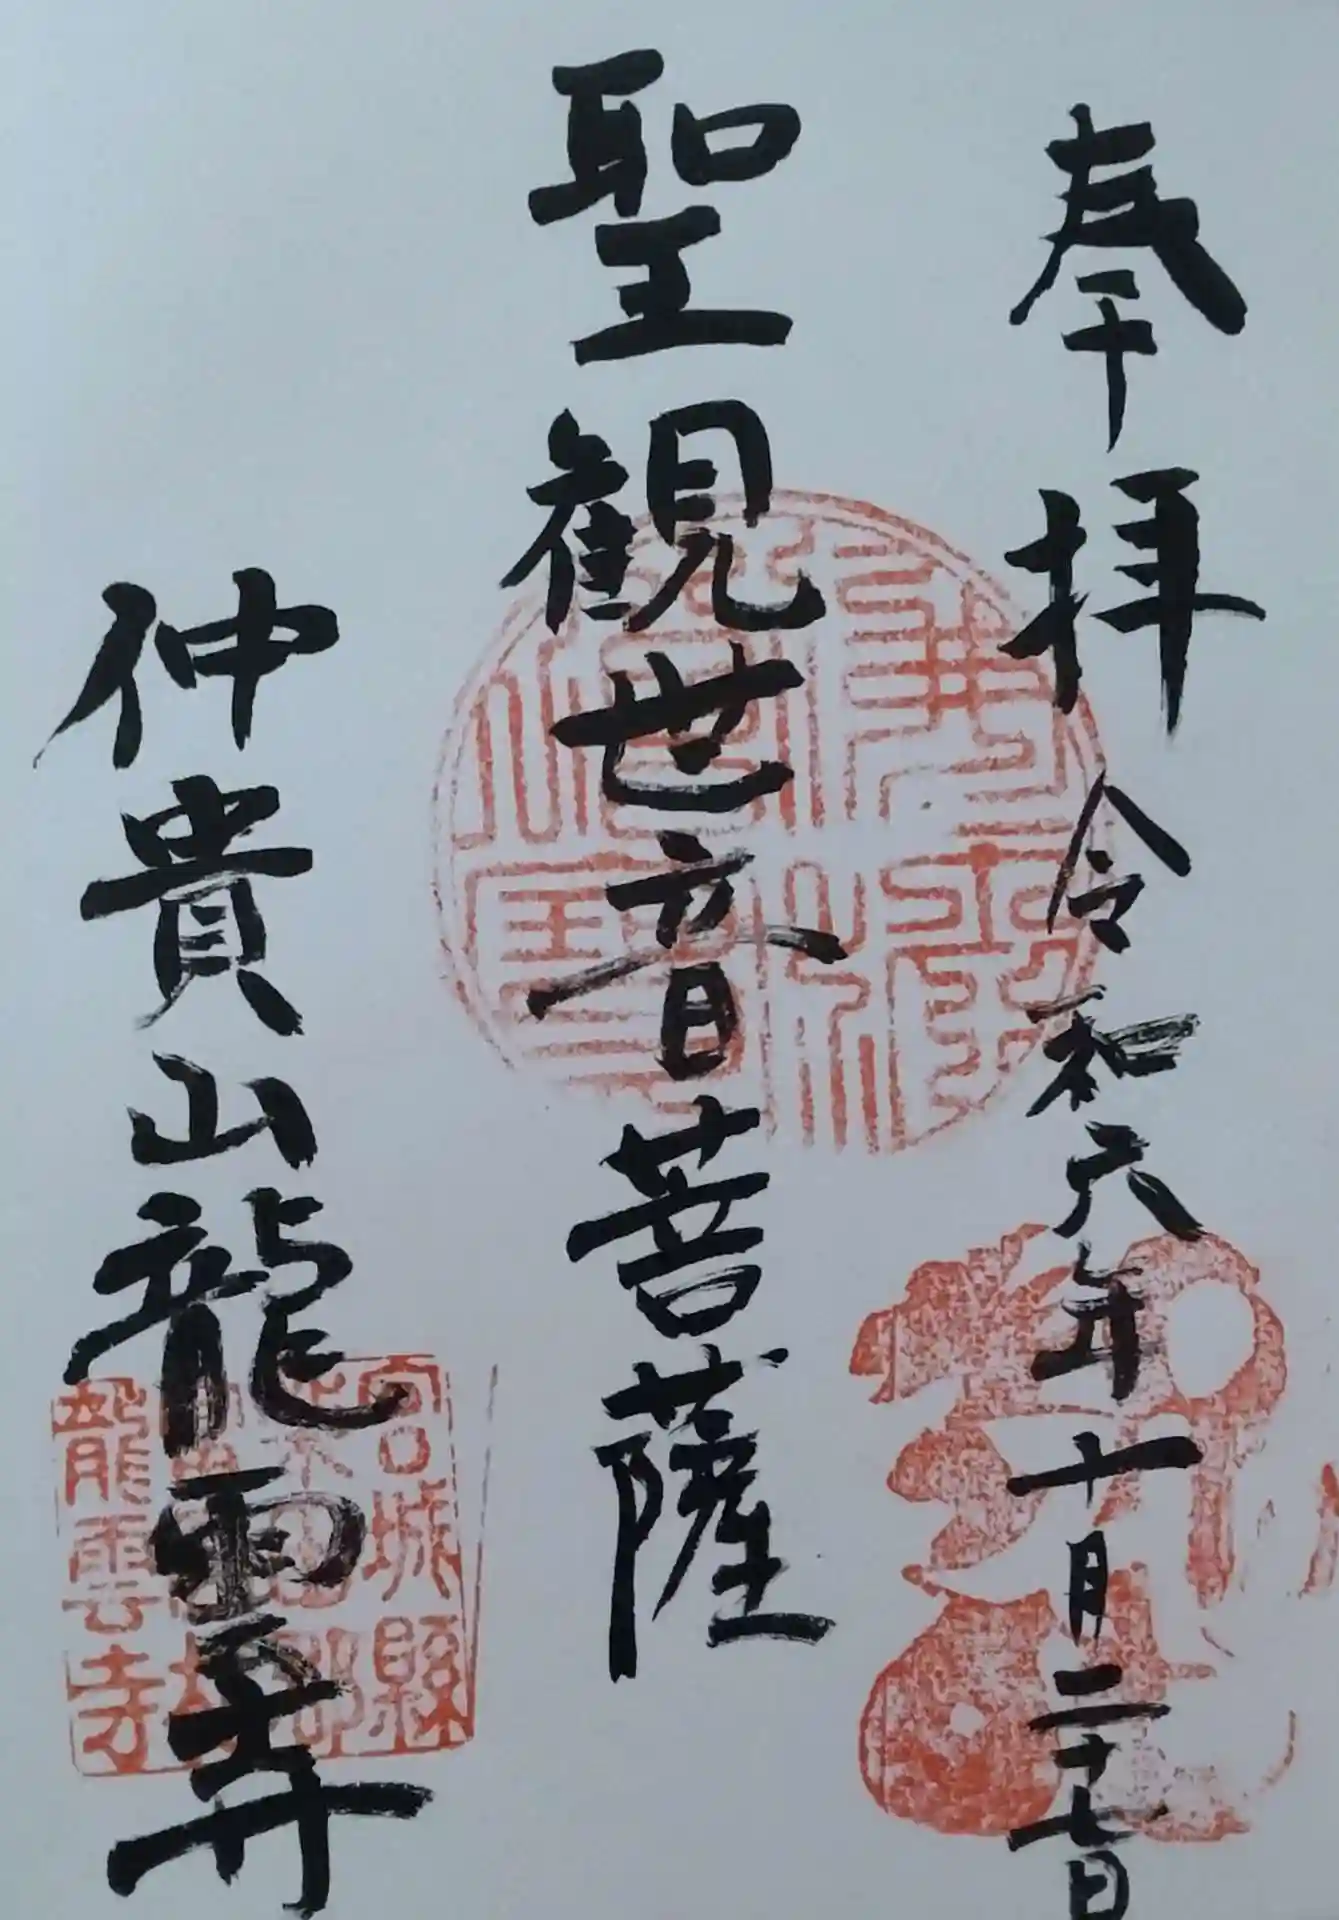 奉拝 令和六年十月二十七日
聖観世音菩薩
仲貴山龍雲寺
佛法僧寳
宮城縣
龍雲寺